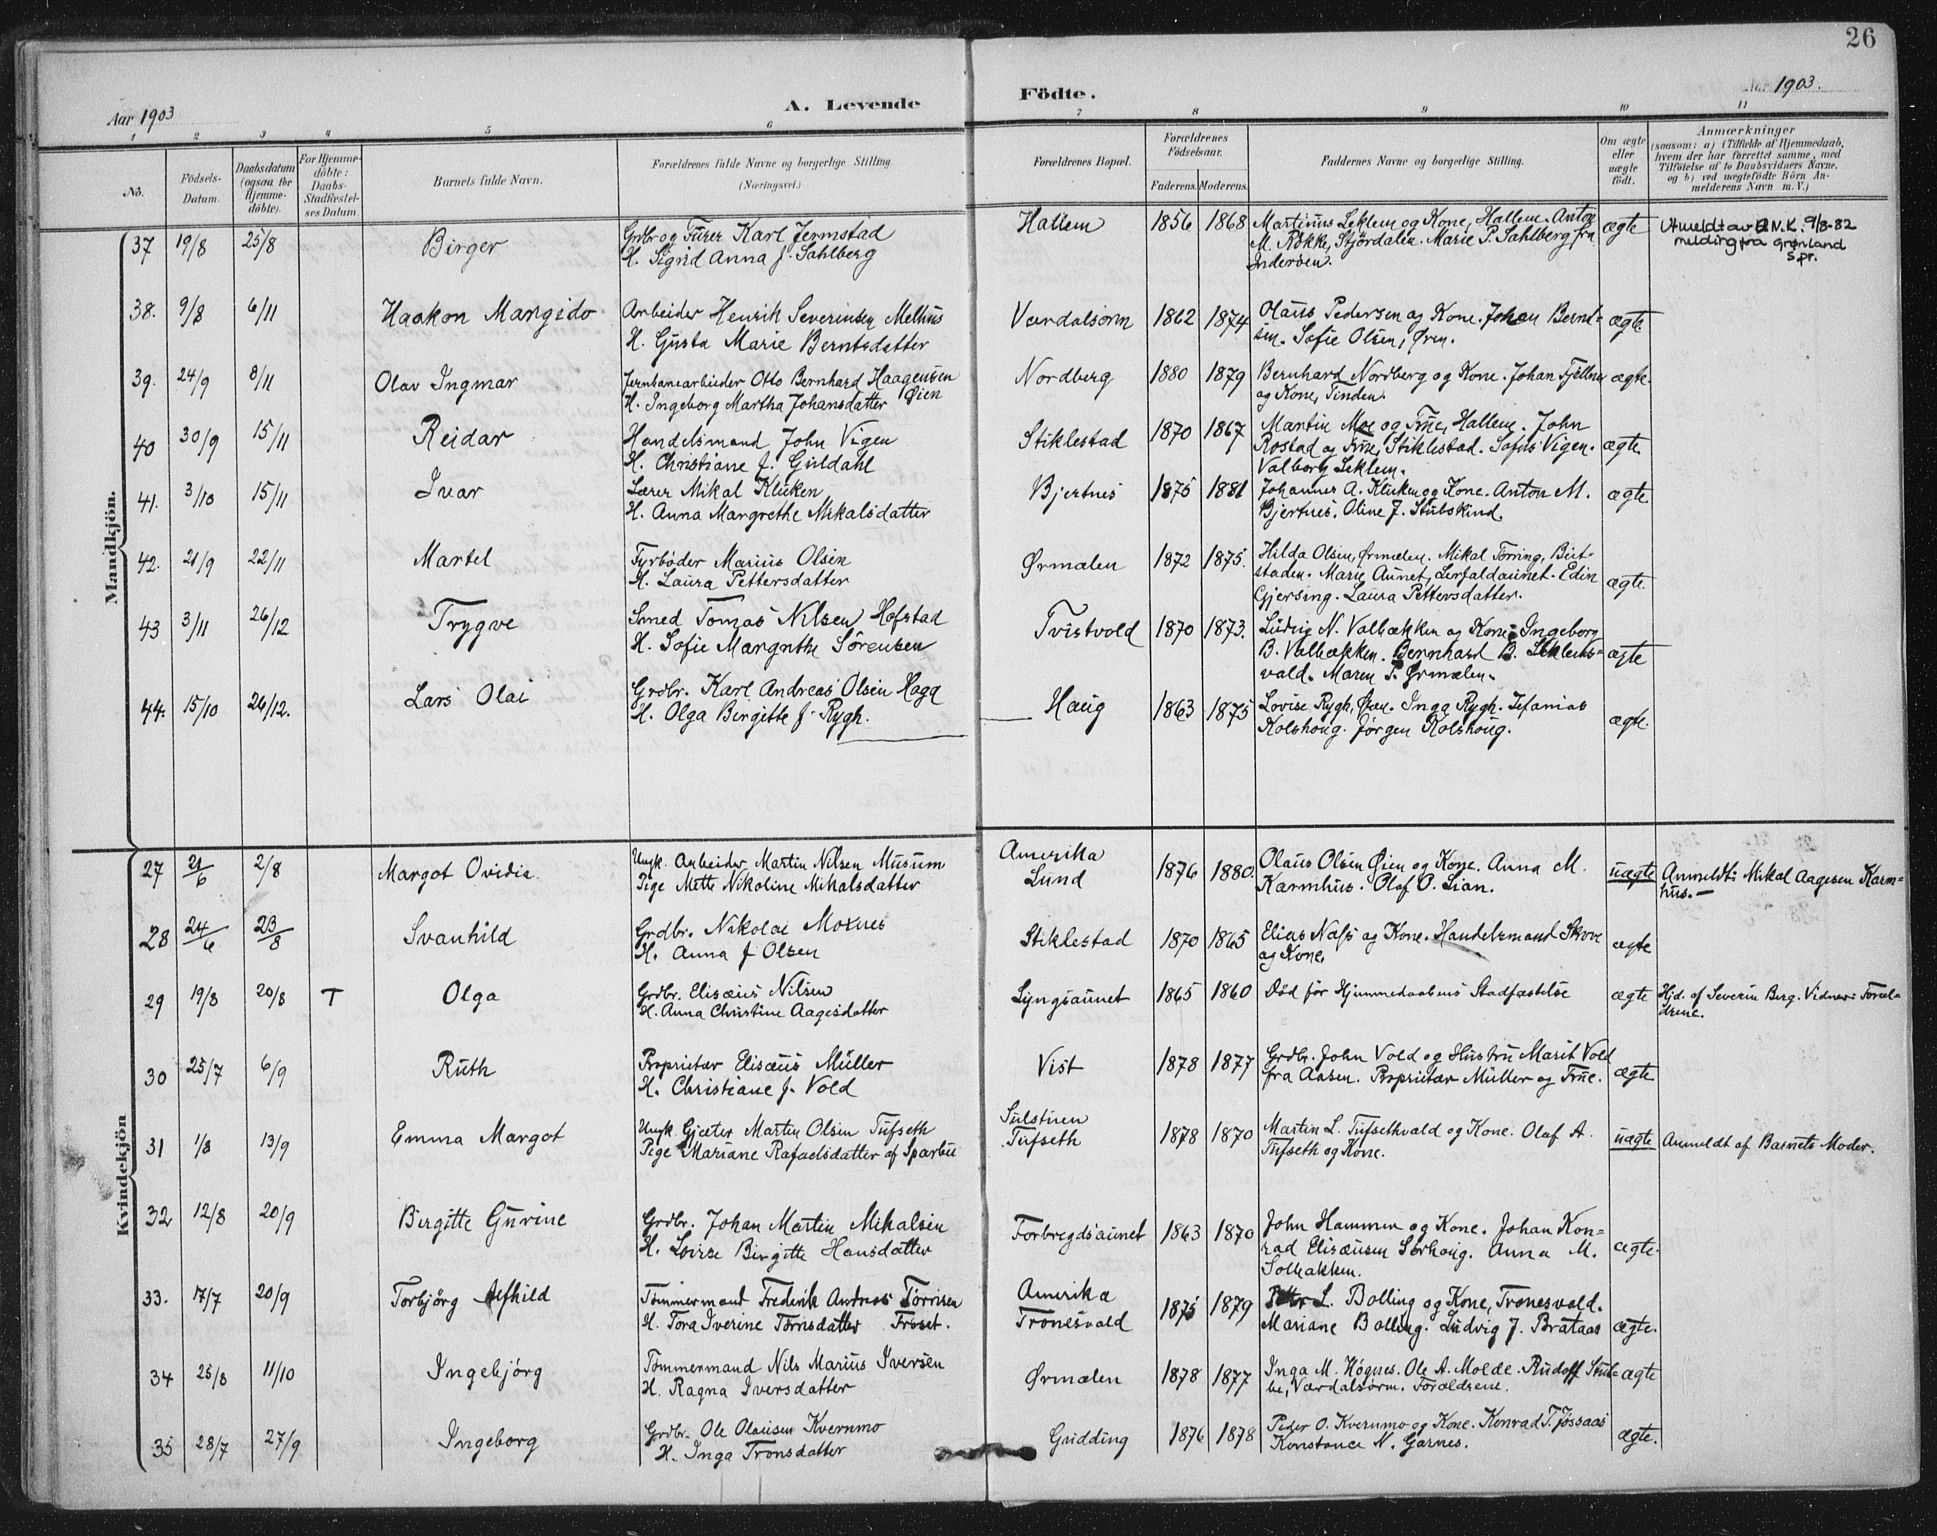 26
Aar 1903
A. Levende
Födte.
Aar 1903.
1 2 3 4 5 6 7 8 9 10 11
No.
Födsels-
Datum.
Daabsdatum
(ogsaa for
Hjemme-
döbte).
For Hjemme-
döbte:
Daabs-
Stadfæstel-
ses Datum.
Barnets fulde Navn.
Forældrenes fulde Navne og borgerlige Stilling
(Næringsvei.)
Forældrenes Bopæl.
Forældrenes
Födselsaar.
Faderens. Moderens.
Faddernes Navne og borgerlige Stilling.
Om ægte
eller
uægte
födt.
Anmærkninger
(saasom: a) i Tilfælde af Hjemmedaab,
hvem der har forrettet samme, med
Tilföielse af to Daabsvidners Navne.
og b) ved uægtefödte Börn An-
melderens Navn m. V.)
Mandkjön.
37 19/8 25/8 Birger
Grdbr og Furer Karl Jermstad
H. Sigrid Anna J. Sahlberg
Hallem 1856 1868
Martinus Leklem og Kone, Hallem. Anton
M. Rökke, Stjördalen. Marie P. Sahlberg fra
Inderöen.
ægte
Utmeldt av D.N.K. 9/8-82
melding fra Grønland
spr.
38. 9/8 6/11 Haakon Margido
Arbeider Henrik Severinsen Melhus
H. Gusta Marie Berntsdatter
Værdalsørn 1862 1874
Olaus Pedersen og Kone. Johan Bernt-
sen. Sofie Olsen, Øren.
ægte
39. 24/9 8/11 Olav Ingmar
Jernbanearbeider Otto Bernhard Haagensen
Øien
H. Ingeborg Martha Johansdatter
Nordberg 1880 1879
Bernhard Nordberg og Kone. Johan Fjellner
og Kone, Tinden.
ægte.
40 30/9 15/11 Reidar
Handelsmand John Vigen
H. Christiane J. Guldahl
Stiklestad 1870 1867
Martin Moe og Frue, Hallem. John
Rostad og Frue, Stiklestad. Sofus Vigen.
Valborg Leklem.
ægte
41. 3/10 15/11 Ivar
Lærer Mikal Klüken
H. Anna Margrethe Mikalsdatter
Bjertnes 1875 1881
Johannes A. Klüken og Kone. Anton M.
Bjertnes. Oline J. Stubskind.
ægte
42. 21/9 22/11 Martel
Fyrbøder Marius Olsen
H. Laura Pettersdatter
Ørmælen 1872 1875.
Hilda Olsen, Ørmelen. Mikal Tørring, Beit-
staden. Marie Aunet, Lerfaldaunet. Edin
Gjersing. Laura Pettersdatter.
ægte
43 3/11 26/12 Trygve
Smed Tomas Nilsen Hofstad
H. Sofie Margrethe Sörensen
Tvistvold 1870 1873.
Ludvig N. Valbækken og Kone. Ingeborg
B. Valbækken. Bernhard B. Leklems-
vald. Maren P. Ørmælen.
ægte
44. 15/10 26/12. Lars Olai
Grdbr. Karl Andreas Olsen Haga
H. Olga Birgitte J. Rygh.
Haug 1863 1875
Lovise Rygh, Øren. Inga Rygh. Zefanias
Kolshoug. Jørgen Kolshoug.
ægte.
Kvindekjön
27 21/6 2/8 Margot Ovidia
Ungk. Arbeider Martin Nilsen Musum
Pige Mette Nikoline Mikalsdatter
Amerika
Lund
1876 1880.
Olaus Olsen Øien og Kone. Anna M.
Karmhus. Olaf O. Lian.
uægte
Anmeldt: Mikal Aagesen Karm-
hus.—
28 24/6 23/8 Svanhild
Grdbr. Nikolai Moxnes
H. Anna J Olsen
Stiklestad 1870 1865
Elias Næss og Kone. Handelsmand Skove
og Kone.
ægte
29 19/8 20/8 T Olga
Grdbr. Elisæus Nilsen
H. Anna Christine Aagesdatter
Lyngsaunet 1865 1860
Død før Hjemmedaabens Stadfæstelse
ægte
Hjd. af Severin Berg. Vidner: Foræl-
drene.
30 25/7 6/9 Ruth
Proprietær Elisæus Müller
H. Christiane J. Vold
Vist 1878 1877
Grdbr. John Vold og Hustru Marit Vold
fra Aasen. Proprietær Müller og Frue.
ægte
31 1/8 13/9 Emma Margot
Ungk Gjæter Martin Olsen Tufseth
Pige Mariane Rafaelsdatter af Sparbu
Sulstuen
Tufseth
1878 1870
Martin L. Tufsethvald og Kone. Olaf A.
Tufseth og Kone.
uægte
Anmeldt af Barnets Moder.
32 12/8 20/9 Birgitte Gurine
Grdbr. Johan Martin Mikalsen
H. Lovise Birgitte Hansdatter
Forbregdsaunet 1863 1870
John Hammer og Kone. Johan Kon-
rad Elisæusen Sørhoug. Anna M.
Solbakken.
ægte.
33. 17/7 20/9 Torbjörg Alfhild
Tømmermand Frederik Andreas Tørrisen
H. Tora Iverine Tørrisdatter Froset.
Amerika
Tronesvald
1875 1879
Petter L. Bolling og Kone, Tronesvald.
Mariane Bolling. Ludvig J. Brataas
ægte.
34 25/8 11/10 Ingebjörg
Tømmermand Nils Marius Iversen
H. Ragna Iversdatter
Ørmælen 1878 1877
Inga M. Högnes. Ole A. Molde. Rudolf Stub-
be, Værdalsørn. Forældrene.
ægte
35 28/7 27/9 Ingeborg
Grdbr. Ole Olausen Kvernmo
H. Inga Tronsdatter
Gudding 1876 1878
Peder O. Kvernmo og Kone. Konrad T. Jøssaas
Konstance N. Garnes.
ægte.